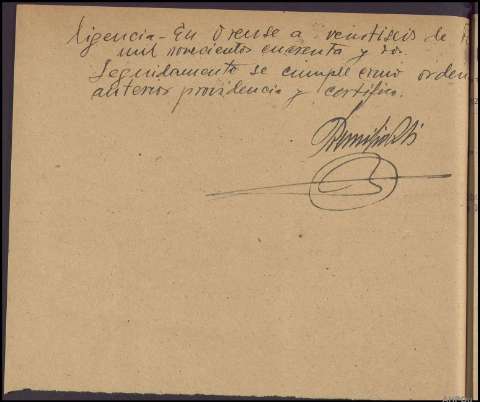 ligencia - En Orense a veintiseis de
mil novecientos cuarenta y dos.
Seguidamente se cumple como orden
anterior providencia y certifico.